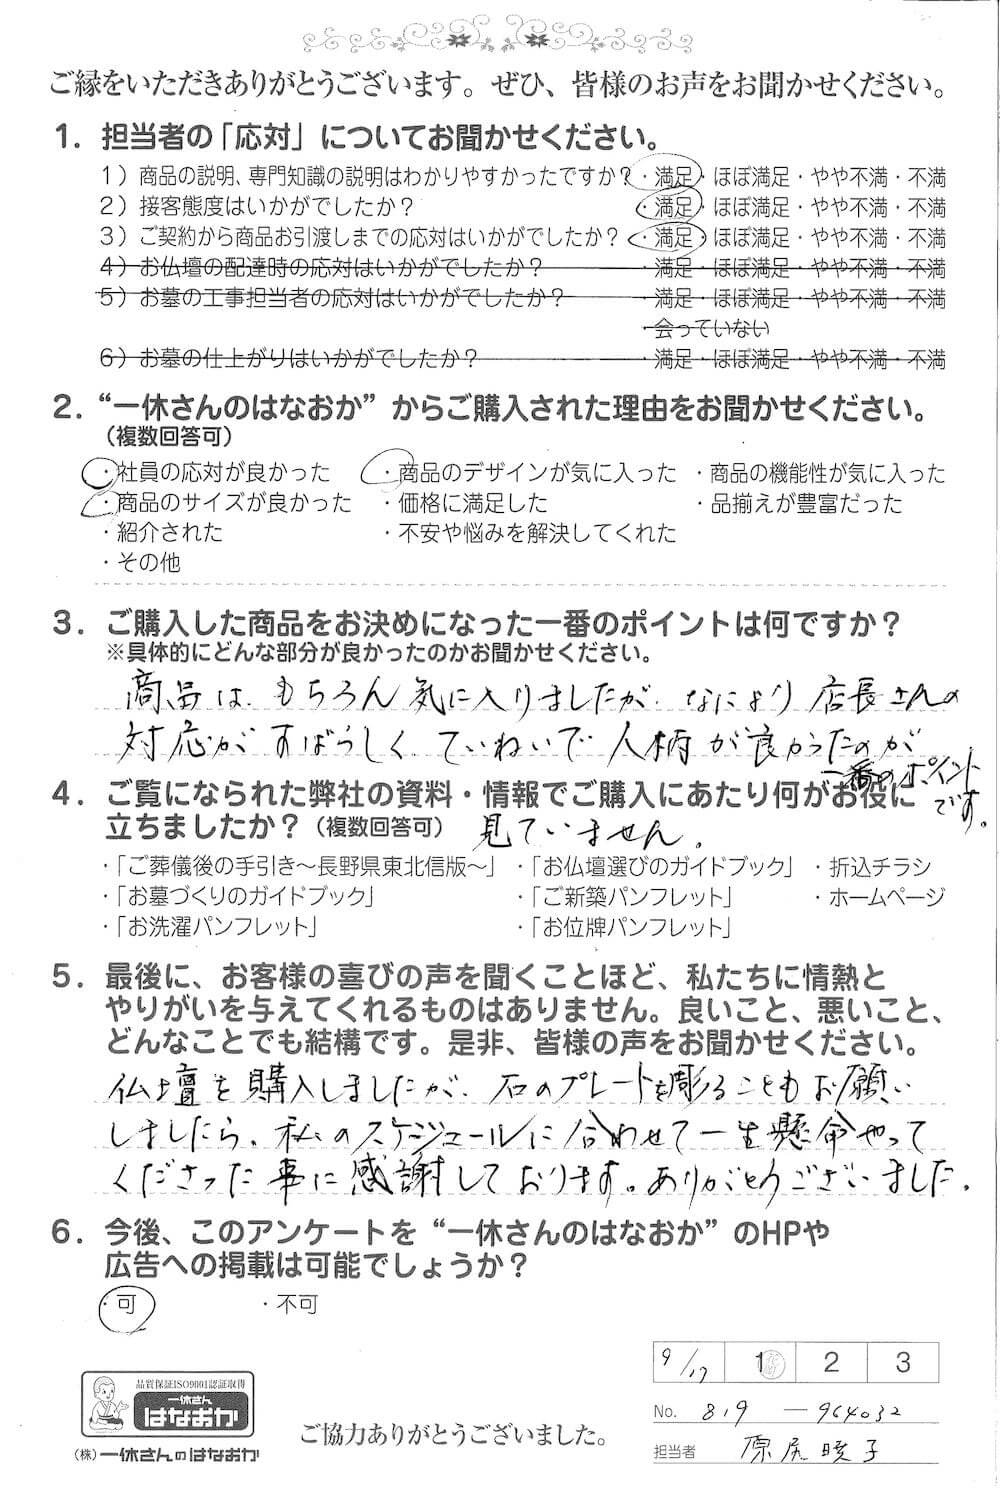 ご縁をいただきありがとうございます。ぜひ、皆様のお声をお聞かせください。
1．担当者の「応対」についてお聞かせください。
1）商品の説明、専門知識の説明はわかりやすかったですか？・満足・ほぼ満足・やや不満・不満
2）接客態度はいかがでしたか？ ・満足・ほぼ満足・やや不満・不満
3）ご契約から商品お引渡しまでの応対はいかがでしたか？ ・満足・ほぼ満足・やや不満・不満
4）お仏壇の配達時の応対はいかがでしたか？ ・満足・ほぼ満足・やや不満・不満
5）お墓の工事担当者の応対はいかがでしたか？ ・満足・ほぼ満足・やや不満・不満
・会っていない
6）お墓の仕上がりはいかがでしたか？ ・満足・ほぼ満足・やや不満・不満
2．“一休さんのはなおか”からご購入された理由をお聞かせください。
（複数回答可）
・社員の応対が良かった ・商品のデザインが気に入った ・商品の機能性が気に入った
・商品のサイズが良かった ・価格に満足した ・品揃えが豊富だった
・紹介された ・不安や悩みを解決してくれた
・その他
3．ご購入した商品をお決めになった一番のポイントは何ですか？
※具体的にどんな部分が良かったのかお聞かせください。
商品は、もちろん気に入りましたが、なにより店長さんの
対応がすばらしく、ていねいで人柄が良かったのが
一番のポイント
です。
4．ご覧になられた弊社の資料・情報でご購入にあたり何がお役に
立ちましたか？（複数回答可） 見ていません。
・「ご葬儀後の手引き～長野県東北信版～」 ・「お仏壇選びのガイドブック」 ・折込チラシ
・「お墓づくりのガイドブック」 ・「ご新築パンフレット」 ・ホームページ
・「お洗濯パンフレット」 ・「お位牌パンフレット」
5．最後に、お客様の喜びの声を聞くことほど、私たちに情熱と
やりがいを与えてくれるものはありません。良いこと、悪いこと、
どんなことでも結構です。是非、皆様の声をお聞かせください。
仏壇を購入しましたが、石のプレートを彫ることもお願い
しましたら、私のスケジュールに合わせて一生懸命やって
くださった事に感謝しております。ありがとうございました。
6．今後、このアンケートを“一休さんのはなおか”のHPや
広告への掲載は可能でしょうか？
・可 ・不可
9/17 1 2 3
品質保証ISO9001認証取得
一休さん
はなおか
（株）一休さんのはなおか
ご協力ありがとうございました。
No. 819－964032
担当者 原尻暁子